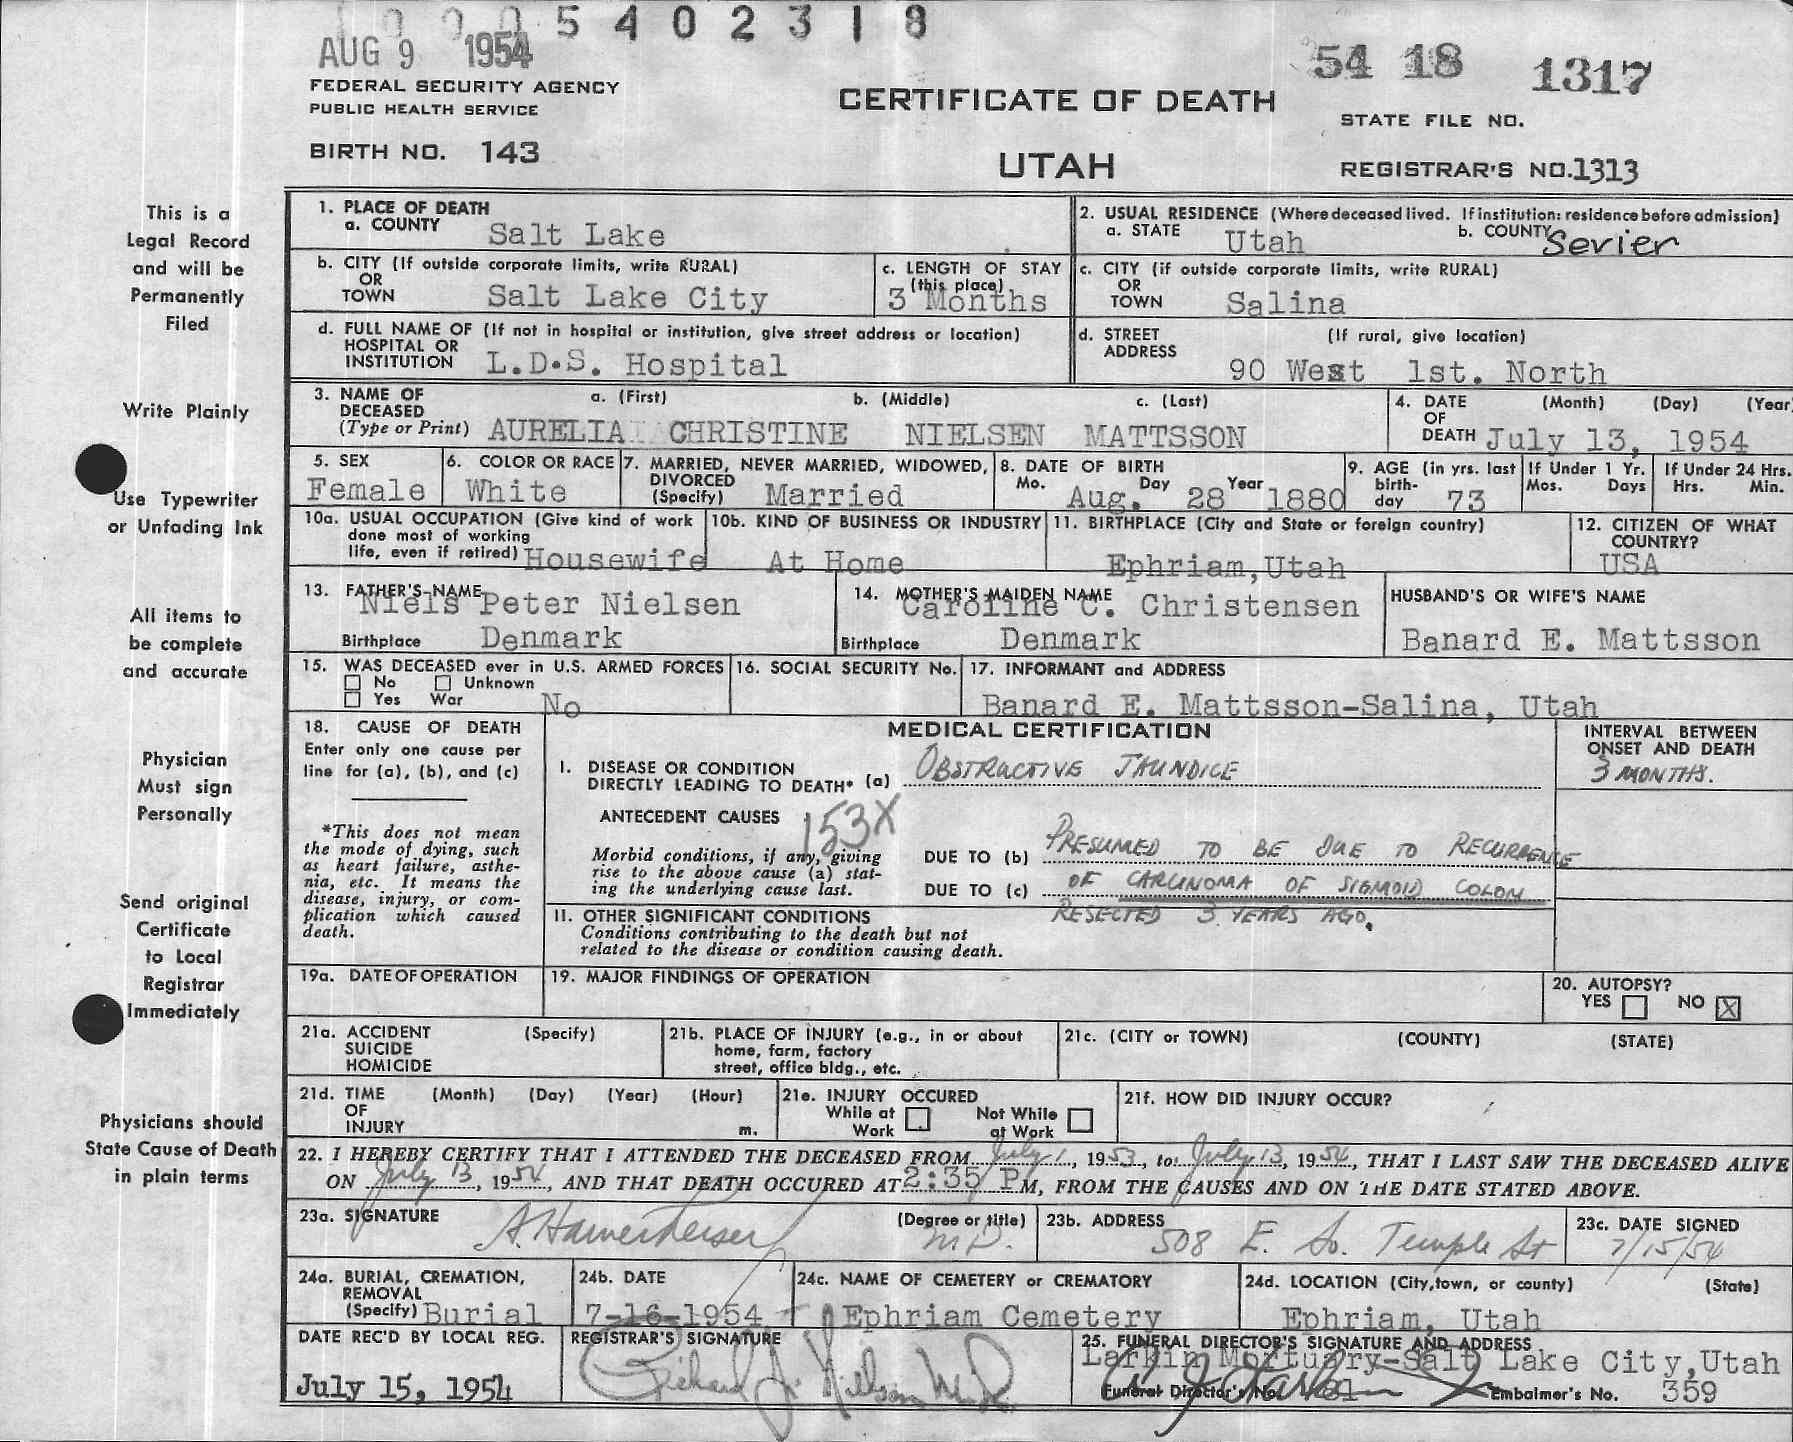 0005402318
AUG 9 1954
54 18 1317
FEDERAL SECURITY AGENCY
PUBLIC HEALTH SERVICE
CERTIFICATE OF DEATH
STATE FILE NO.
BIRTH NO. 143
UTAH
REGISTRAR'S NO. 1313
This is a
Legal Record
and will be
Permanently
Filed
Write Plainly
Use Typewriter
or Unfading Ink
All items to
be complete
and accurate
Physician
Must sign
Personally
Send original
Certificate
to Local
Registrar
Immediately
Physicians should
State Cause of Death
in plain terms
1. PLACE OF DEATH
a. COUNTY Salt Lake
2. USUAL RESIDENCE (Where deceased lived. If institution: residence before admission)
a. STATE Utah b. COUNTY Sevier
b. CITY (If outside corporate limits, write RURAL)
OR
TOWN Salt Lake City
c. LENGTH OF STAY
(this place)
3 Months
c. CITY (if outside corporate limits, write RURAL)
OR
TOWN Salina
d. FULL NAME OF (If not in hospital or institution, give street address or location)
HOSPITAL OR
INSTITUTION L.D.S. Hospital
d. STREET (If rural, give location)
ADDRESS
90 West 1st. North
3. NAME OF a. (First) b. (Middle) c. (Last)
DECEASED
(Type or Print) AURELIA CHRISTINE NIELSEN MATTSSON
4. DATE (Month) (Day) (Year
OF
DEATH July 13, 1954
5. SEX
Female
6. COLOR OR RACE
White
7. MARRIED, NEVER MARRIED, WIDOWED,
DIVORCED
(Specify) Married
8. DATE OF BIRTH
Mo. Day Year
Aug. 28 1880
9. AGE (in yrs. last
birth-
day 73
If Under 1 Yr.
Mos. Days
If Under 24 Hrs.
Hrs. Min.
10a. USUAL OCCUPATION (Give kind of work
done most of working
life, even if retired) Housewife
10b. KIND OF BUSINESS OR INDUSTRY
At Home
11. BIRTHPLACE (City and State or foreign country)
Ephriam, Utah
12. CITIZEN OF WHAT
COUNTRY?
USA
13. FATHER'S NAME
Niels Peter Nielsen
Birthplace Denmark
14. MOTHER'S MAIDEN NAME
Caroline C. Christensen
Birthplace Denmark
HUSBAND'S OR WIFE'S NAME
Banard E. Mattsson
15. WAS DECEASED ever in U.S. ARMED FORCES
No Unknown
Yes War No
16. SOCIAL SECURITY No.
17. INFORMANT and ADDRESS
Banard E. Mattsson-Salina, Utah
18. CAUSE OF DEATH
Enter only one cause per
line for (a), (b), and (c)
*This does not mean
the mode of dying, such
as heart failure, asthe-
nia, etc. It means the
disease, injury, or com-
plication which caused
death.
MEDICAL CERTIFICATION
I. DISEASE OR CONDITION
DIRECTLY LEADING TO DEATH* (a) OBSTRUCTIVE JAUNDICE
INTERVAL BETWEEN
ONSET AND DEATH
3 MONTHS.
ANTECEDENT CAUSES 153X
Morbid conditions, if any, giving
rise to the above cause (a) stat-
ing the underlying cause last.
DUE TO (b) PRESUMED TO BE DUE TO RECURRENCE
DUE TO (c) OF CARCINOMA OF SIGMOID COLON
RESECTED 3 YEARS AGO.
II. OTHER SIGNIFICANT CONDITIONS
Conditions contributing to the death but not
related to the disease or condition causing death.
19a. DATE OF OPERATION
19. MAJOR FINDINGS OF OPERATION
20. AUTOPSY?
YES NO X
21a. ACCIDENT (Specify)
SUICIDE
HOMICIDE
21b. PLACE OF INJURY (e.g., in or about
home, farm, factory
street, office bldg., etc.
21c. (CITY or TOWN) (COUNTY) (STATE)
21d. TIME (Month) (Day) (Year) (Hour)
OF
INJURY m.
21e. INJURY OCCURED
While at Work Not While at Work
21f. HOW DID INJURY OCCUR?
22. I HEREBY CERTIFY THAT I ATTENDED THE DECEASED FROM July 1, 1953, to July 13, 1954, THAT I LAST SAW THE DECEASED ALIVE
ON July 13, 1954, AND THAT DEATH OCCURED AT 2:35 P M, FROM THE CAUSES AND ON THE DATE STATED ABOVE.
23a. SIGNATURE (Degree or title)
M.D.
23b. ADDRESS
508 E. So. Temple St
23c. DATE SIGNED
7/15/54
24a. BURIAL, CREMATION,
REMOVAL
(Specify) Burial
24b. DATE
7-16-1954
24c. NAME OF CEMETERY or CREMATORY
Ephriam Cemetery
24d. LOCATION (City, town, or county) (State)
Ephriam, Utah
DATE REC'D BY LOCAL REG.
July 15, 1954
REGISTRAR'S SIGNATURE
25. FUNERAL DIRECTOR'S SIGNATURE AND ADDRESS
Larkin Mortuary-Salt Lake City, Utah
Funeral Director's No. Embalmer's No. 359